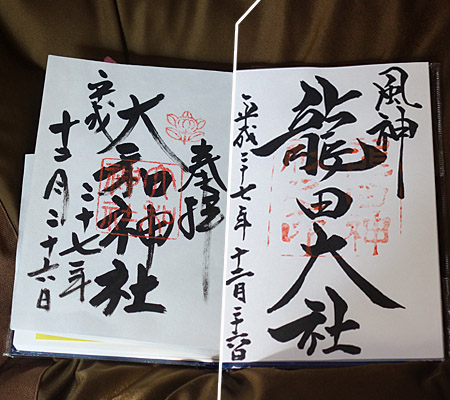 風神
龍田大社
平成二十七年十二月二十六日
奉拝
大和神社
平成二十七年
十二月二十六日